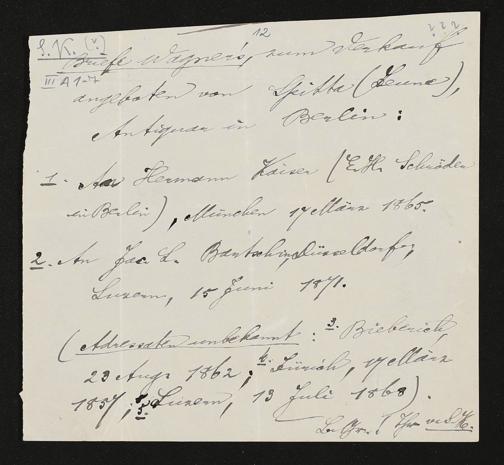 12
S. K. (v)
? ? ?
III A 1-7
Briefe Wagner's, zum Verkauf
angeboten von Spitta (Leuna),
Antiquar in Berlin:
1. An Hermann Kaiser (E. H. Schröder
in Berlin), München 17 März 1865.
2. An Jac. L. in Düsseldorf,
Luzern, 15 Juni 1871.
(Adressaten unbekannt: 3. Bieberich,
23 Aug. 1862; 4. Zürich, 17 März
1857; 5. Luzern, 13 Juli 1868).